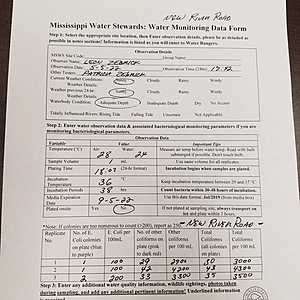 NEW RIVER ROAD
Mississippi Water Stewards: Water Monitoring Data Form
Step 1: Select the appropriate site location, then Enter observation details, please be as detailed as
possible in notes section! Information is listed as you will enter to Water Rangers.
Observation Details
MSWS Site Code: Group Name:
Observer Name: LEON
Observation Date: 5-5-22 Observation Time (24hr): 17:12
Other Testers: PATRICIA
Current Weather Conditions: Sunny Cloudy Rainy Windy
Weather Details:
Weather previous 24-hr: Sunny Cloudy Rainy Windy
Weather Details:
Waterbody Condition: Adequate Depth Inadequate Depth Dry No Access
Tidally Influenced Rivers: Rising Tide Falling Tide Uncertain Not Applicable
Step 2: Enter water observation data & associated bacteriological monitoring parameters if you are
monitoring bacteriological parameters.
Observation Data
Variable Value Important Tips
Temperature (°C) Air 28 Water 24 Measure air temp before water temp. Read with bulb
submerged if possible. Don't touch bulb.
Sample Volume 1 mL Use same volume for all replicates.
Plating Time (24-hr format) Incubation begins when samples are plated.
Incubation Temperature 36 °C Keep incubation temperature between 29 and 37 °C
Incubation Period 38 Hours Count bacteria within 30-48 hours
Media Expiration Date 9-5-22 Use this date format: Jul/2019 (from media bottles)
Plated onsite Yes No If not plated at sampling site, always transport on
ice and plate within 3 hours.
*Note: If colonies are too numerous to count (>200), report as 250. - NEW RIVER ROAD -
Replicate No. No. of E. Coli colonies on plate (blue) E. Coli per 100mL No. of Other coliforms on plate (pink & dark red) Other coliforms per 100 mL Total Coliforms (all colonies on plate) Total coliforms per 100 mL
1 1 100 29 2900 30 3000
2 1 100 42 4200 43 4300
3 2 200 33 3300 35 3500
Step 3: Enter any additional water quality information, wildlife sightings, photos taken
during sampling, and add any additional pertinent information! Underlined information